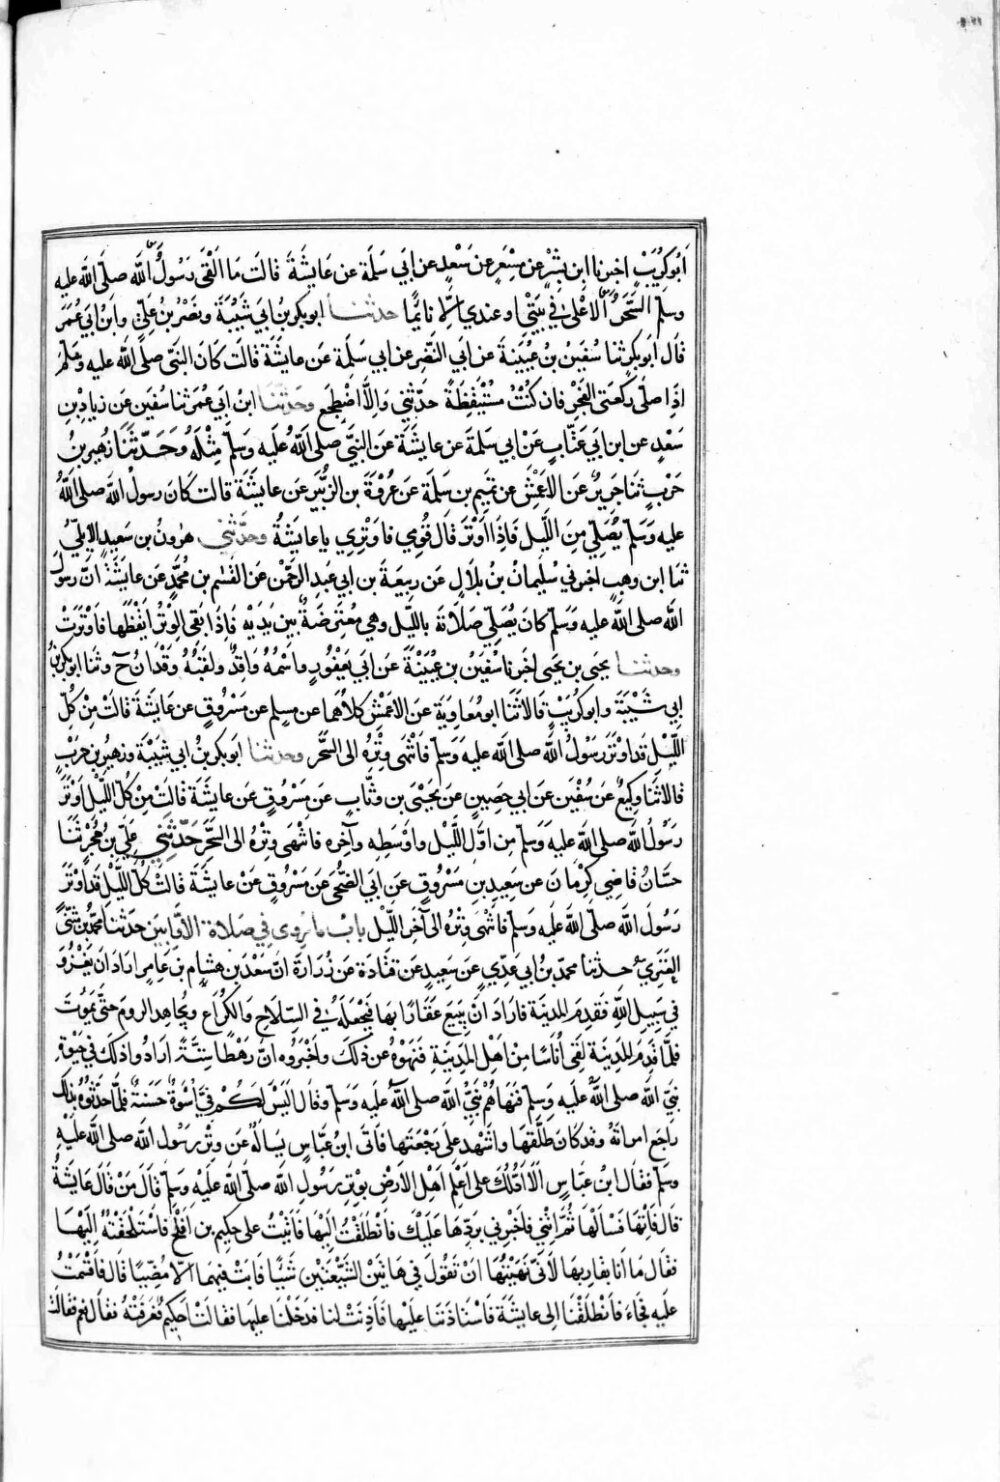 ابو كريب اخبرنا ابن بشر عن مسعر عن سعد عن ابي سلمة عن عايشة قالت ما الفى رسول الله صلى الله عليه
وسلم السحر الاعلى في بيتي او عندي الا نائما حدثنا ابو بكر بن ابي شيبة ونصر بن علي وابن ابي عمر
قال ابو بكر ثنا سفين بن عيينة عن ابي النضر عن ابي سلمة عن عايشة قالت كان النبي صلى الله عليه وسلم
اذا صلى ركعتي الفجر فان كنت مستيقظة حدثني والا اضطجع وحدثنا ابن ابي عمر ثنا سفين عن زياد بن
سعد عن ابن ابي عتاب عن ابي سلمة عن عايشة عن النبي صلى الله عليه وسلم مثله وحدثنا زهير بن
حرب ثنا جرير عن الاعمش عن تميم بن سلمة عن عروة بن الزبير عن عايشة قالت كان رسول الله صلى الله
عليه وسلم يصلي من الليل فاذا اوتر قال قومي فاوتري يا عايشة وحدثني هرون بن سعيد الايلي
ثنا ابن وهب اخبرني سليمان بن بلال عن ربيعة بن ابي عبد الرحمن عن القسم بن محمد عن عايشة ان رسول
الله صلى الله عليه وسلم كان يصلي صلاته بالليل وهي معترضة بين يديه فاذا بقى الوتر ايقظها فاوترت
وحدثنا يحيى بن يحيى اخبرنا سفين بن عيينة عن ابي يعفور واسمه واقد ولقبه وقدان ح وثنا ابو بكر بن
ابي شيبة وابو كريب قالا ثنا ابو معاوية عن الاعمش كلاهما عن مسلم عن مسروق عن عايشة قالت من كل
الليل قد اوتر رسول الله صلى الله عليه وسلم فانتهى وتره الى السحر وحدثنا ابو بكر بن ابي شيبة وزهير بن حرب
قالا ثنا وكيع عن سفين عن ابي حصين عن يحيى بن وثاب عن مسروق عن عايشة قالت من كل الليل اوتر
رسول الله صلى الله عليه وسلم من اول الليل واوسطه وآخره فانتهى وتره الى السحر حدثني علي بن حجر ثنا
حسان قاضي كرمان عن سعيد بن مسروق عن ابي الضحى عن مسروق عن عايشة قالت كل الليل قد اوتر
رسول الله صلى الله عليه وسلم فانتهى وتره الى آخر الليل باب ما يروى في صلاة الاوابين حدثنا محمد بن مثنى
العنزي حدثنا محمد بن ابي عدي عن سعيد عن قتادة عن زرارة ان سعد بن هشام بن عامر اراد ان يغزو
في سبيل الله فقدم المدينة فاراد ان يبيع عقارا بها فيجعله في السلاح والكراع ويجاهد الروم حتى يموت
فلما قدم المدينة لقى اناسا من اهل المدينة فنهوه عن ذلك واخبروه ان رهطا ستة ارادوا ذلك في حيوة
نبي الله صلى الله عليه وسلم فنهاهم نبي الله صلى الله عليه وسلم وقال اليس لكم في اسوة حسنة فلما حدثوه بذلك
راجع امراته وقد كان طلقها واشهد على رجعتها فاتى ابن عباس يساله عن وتر رسول الله صلى الله عليه
وسلم فقال ابن عباس الا ادلك على اعلم اهل الارض بوتر رسول الله صلى الله عليه وسلم قال من قال عايشة
قال فاتها فسالها ثم ائتني فاخبرني بردها عليك فانطلقت اليها فاتيت على حكيم بن افلح فاستلحقته اليها
فقال ما انا بقاربها لاني نهيتها ان تقول في هاتين الشيعتين شيئا فابت فيهما الا مضيا قال فاقسمت
عليه فجاء فانطلقنا الى عايشة فاستاذنا عليها فاذنت لنا فدخلنا عليها فقالت احكيم فعرفته فقال نعم فقالت